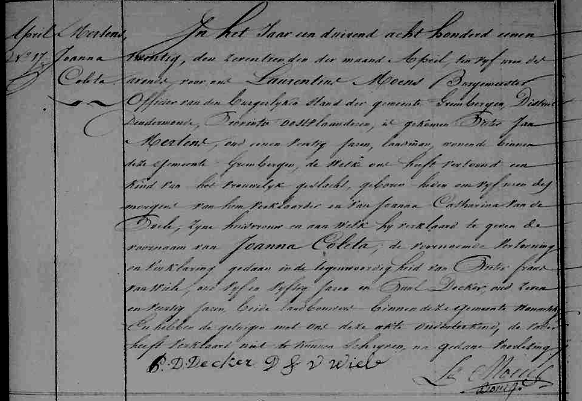 April
N° 17
Mertens
Joanna
Coleta
In het Jaar een duizend acht honderd eenen
twintig, den zeventienden der maand April, ten vyf uren des
avonds, voor ons Laurentius Moens Burgemeester
Officier van den burgerlyken Stand der gemeente Grembergen, District
Dendermonde, Provintie Oostvlaanderen, is gekomen Pieter Jan
Mertens, oud eenen jaren, landman, wonende binnen
deze Gemeente Grembergen, de welke ons heeft vertoond een
kind van het vrouwelyk geslacht, geboren heden om vyf uren des
morgens van hem verklaarder en van Joanna Catharina Van de
zyne huisvrouw en aan welk hy verklaard te geven de
voornaam van Joanna Coleta, de voornoemde vertooning
en verklaring gedaan in de tegenwoordigheid van Pieter Frans
van Wiele, oud vyf en vyftig jaren en Decker, oud zeven
en jaren beide landbouwers binnen deze Gemeente
en hebben de getuigen met ons deze akte onderteekend, de
heeft verklaard niet te kunnen schryven, na gedane voorlezing
P. D. Decker P f v Wiele
L. Moens